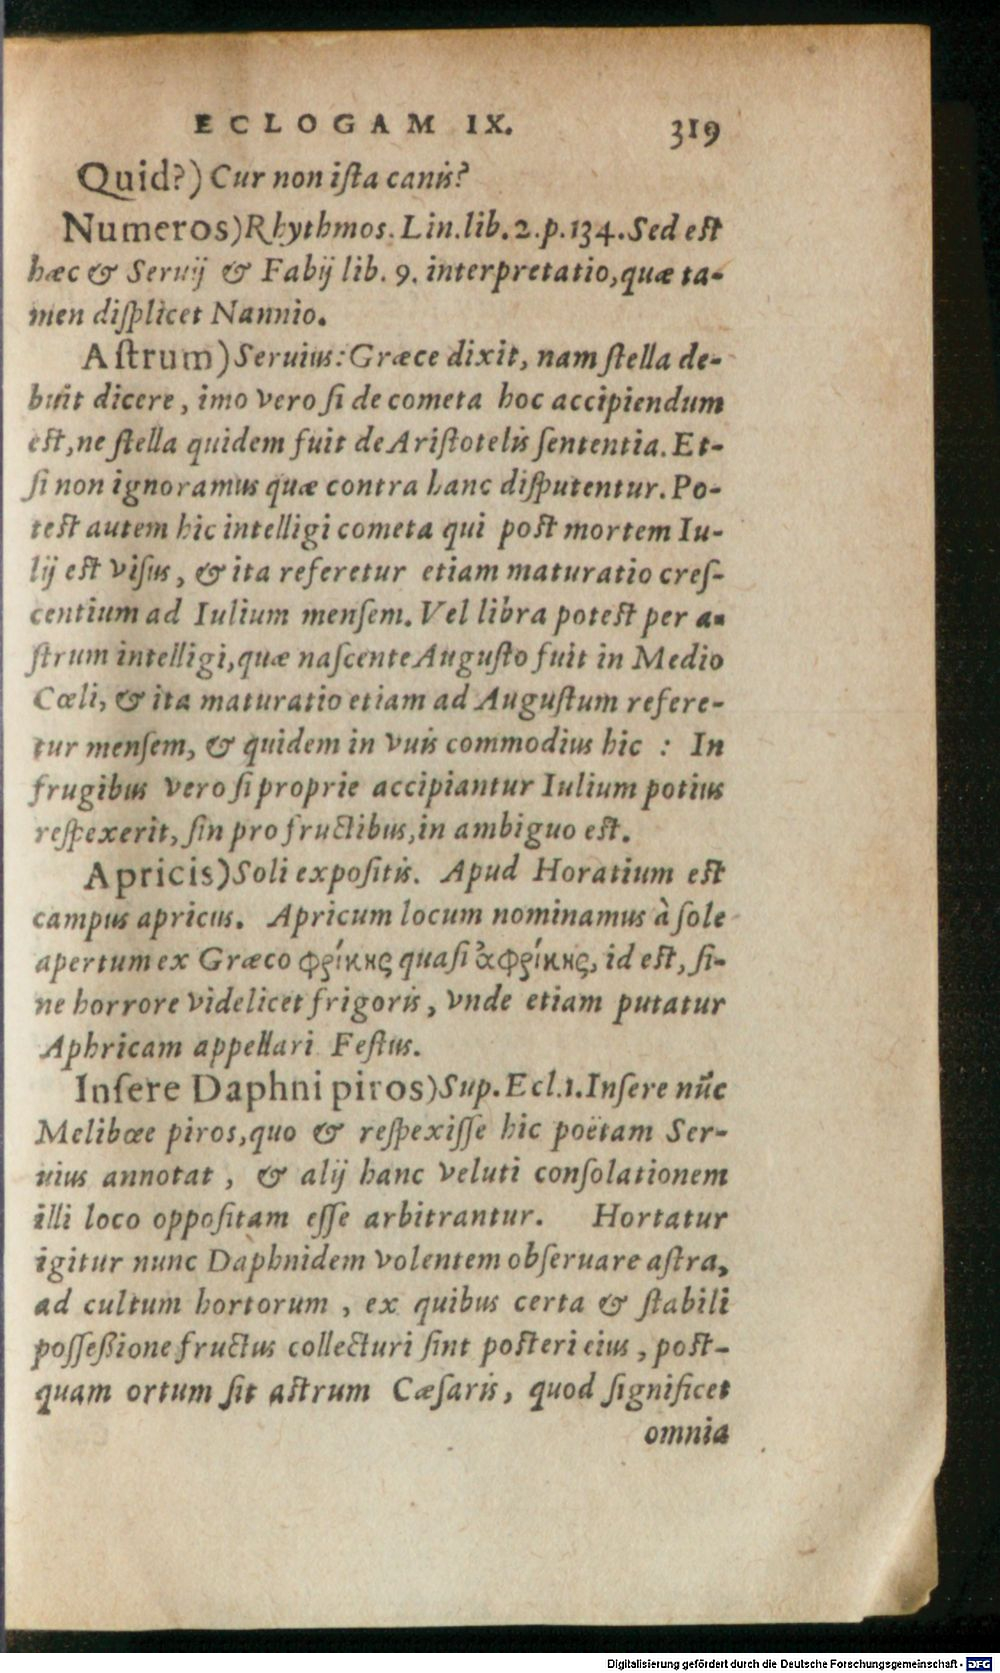 ECLOGAM IX. 319
Quid?) Cur non ista canis?
Numeros) Rhythmos. Lin. lib. 2. p. 134. Sed est
hæc & Seruij & Fabij lib. 9. interpretatio, quæ ta-
men displicet Nannio.
Astrum) Seruius: Græce dixit, nam stella de-
buit dicere, imo vero si de cometa hoc accipiendum
est, ne stella quidem fuit de Aristotelis sententia. Et-
si non ignoramus quæ contra hanc disputentur. Po-
test autem hic intelligi cometa qui post mortem Iu-
lij est visus, & ita referetur etiam maturatio cres-
centium ad Iulium mensem. Vel libra potest per a-
strum intelligi, quæ nascente Augusto fuit in Medio
Cœli, & ita maturatio etiam ad Augustum refere-
tur mensem, & quidem in vuis commodius hic : In
frugibus vero si proprie accipiantur Iulium potius
respexerit, sin pro fructibus, in ambiguo est.
Apricis) Soli expositis. Apud Horatium est
campus apricus. Apricum locum nominamus à sole
apertum ex Græco φρίκης quasi ἀφρίκης, id est, si-
ne horrore videlicet frigoris, vnde etiam putatur
Aphricam appellari Festus.
Insere Daphni piros) Sup. Ecl. 1. Insere nũc
Melibœe piros, quo & respexisse hic poëtam Ser-
uius annotat, & alij hanc veluti consolationem
illi loco oppositam esse arbitrantur. Hortatur
igitur nunc Daphnidem volentem obseruare astra,
ad cultum hortorum, ex quibus certa & stabili
posseßione fructus collecturi sint posteri eius, post-
quam ortum sit astrum Cæsaris, quod significet
omnia
Digitalisierung gefördert durch die Deutsche Forschungsgemeinschaft - DFG